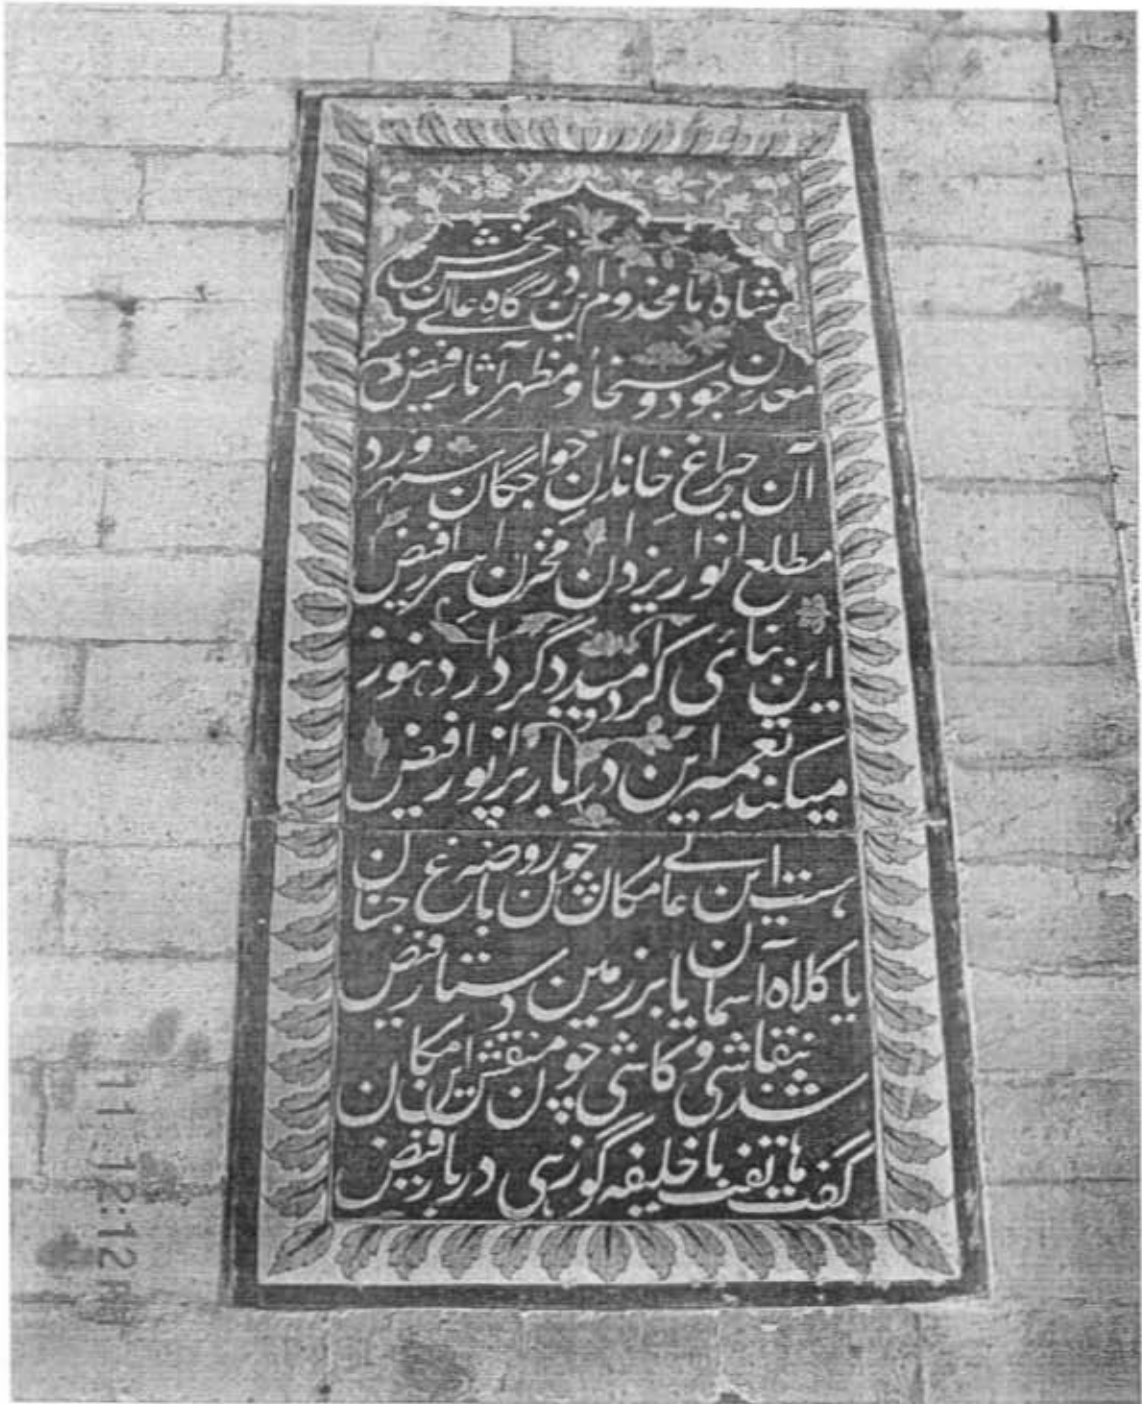 شاه ما مخدوم این درگاه عالی بخش
معدن جود و سخا و مظهر آثار فیض
آن چراغ خاندان خواجگان سهرورد
مطلع انوار یزدان مخزن اسرار فیض
این بنائی کرد امید دگر دارد هنوز
میکند تعمیر این دربار پر انوار فیض
هست این عالی مکان چون روضه باغ جنان
یا کلاه آسمان یا بر زمین دستار فیض
شد بنقاشی و کاشی چون منقش این مکان
گفت هاتف با خلیفه گو زهی دربار فیض
11 12:12